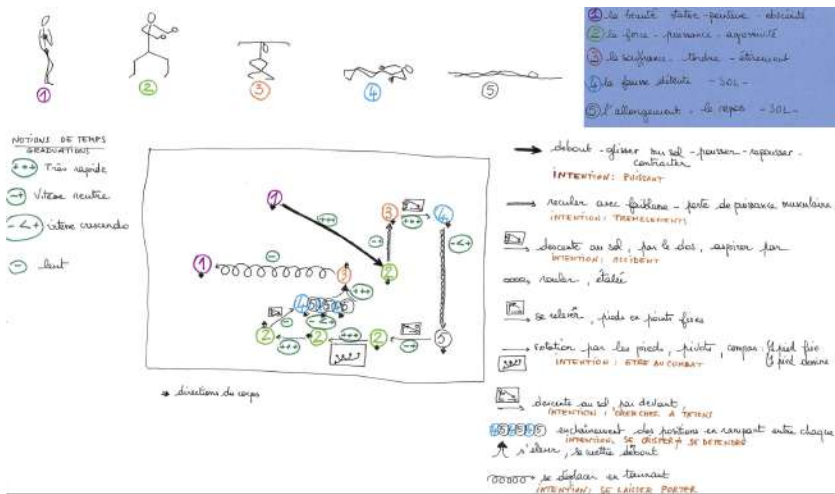 1 2 3 4 5
1 la beauté statue - posture - obscénité
2 la force - puissance - agressivité
3 la souffrance - tordre - étirement
4 la fausse détente - SOL -
5 l'allongement - le repos - SOL -
NOTIONS DE TEMPS
GRADUATIONS
+++ Très rapide
-+ Vitesse neutre
-<+ vitesse crescendo
- lent
1 +++ 2 -+ 3 +++ 4 -<+ 5
-+ 2 +++ 2 +++ 2 - 4 5 4 5 4 5 -<+
+++ 3 - 1
directions du corps
debout - glisser au sol - pousser - repousser -
contracter
INTENTION: PUISSANT
reculer avec faiblesse - perte de puissance musculaire
INTENTION: TREMBLEMENTS
descente au sol, par le dos, aspirer par
INTENTION: ACCIDENT
rouler, étalée
se relever, pieds en points fixes
rotation par les pieds, pivots, compas: 1 pied fixe
1 pied dessine
INTENTION: ETRE AU COMBAT
descente au sol par devant
INTENTION: CHERCHER A TATONS
4 5 4 5 4 5 enchaînement des positions en rampant entre chaque
INTENTION: SE CRISPER & SE DEFENDRE
s'élever, se mettre debout
se déplacer en tournant
INTENTION: SE LAISSER PORTER